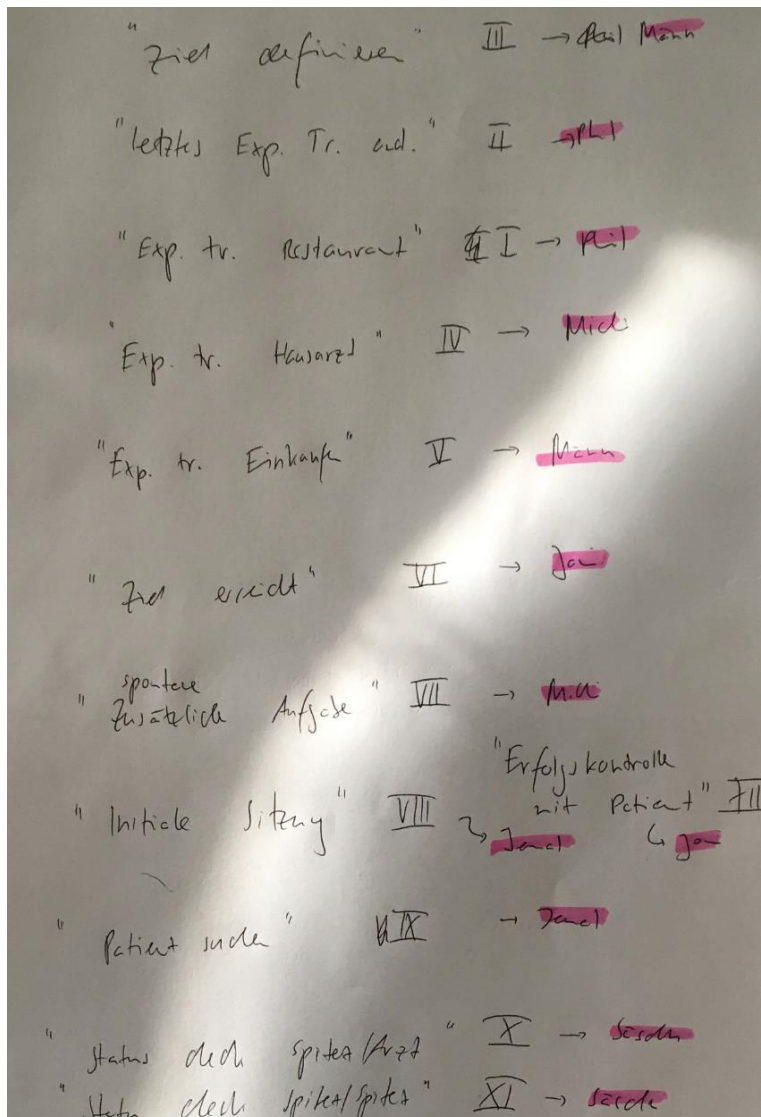 "Ziel definieren" III → Phil Männ
"letztes Exp. Tr. aud." II → Phil
"Exp. tr. Restaurant" I → Phil
"Exp. tr. Hausarzt" IV → Mich
"Exp. tr. Einkaufen" V → Männ
"Ziel erreicht" VI → Jan
spontane
"Zusätzliche Aufgabe" VII →
"Initiale Sitzung" VIII →
"Erfolgskontrolle
mit Patient" XII
→ Jan
"Patient suchen" IX →
"Status check Spitex/Arzt" X →
"Status check Spitex/Spitex" XI →